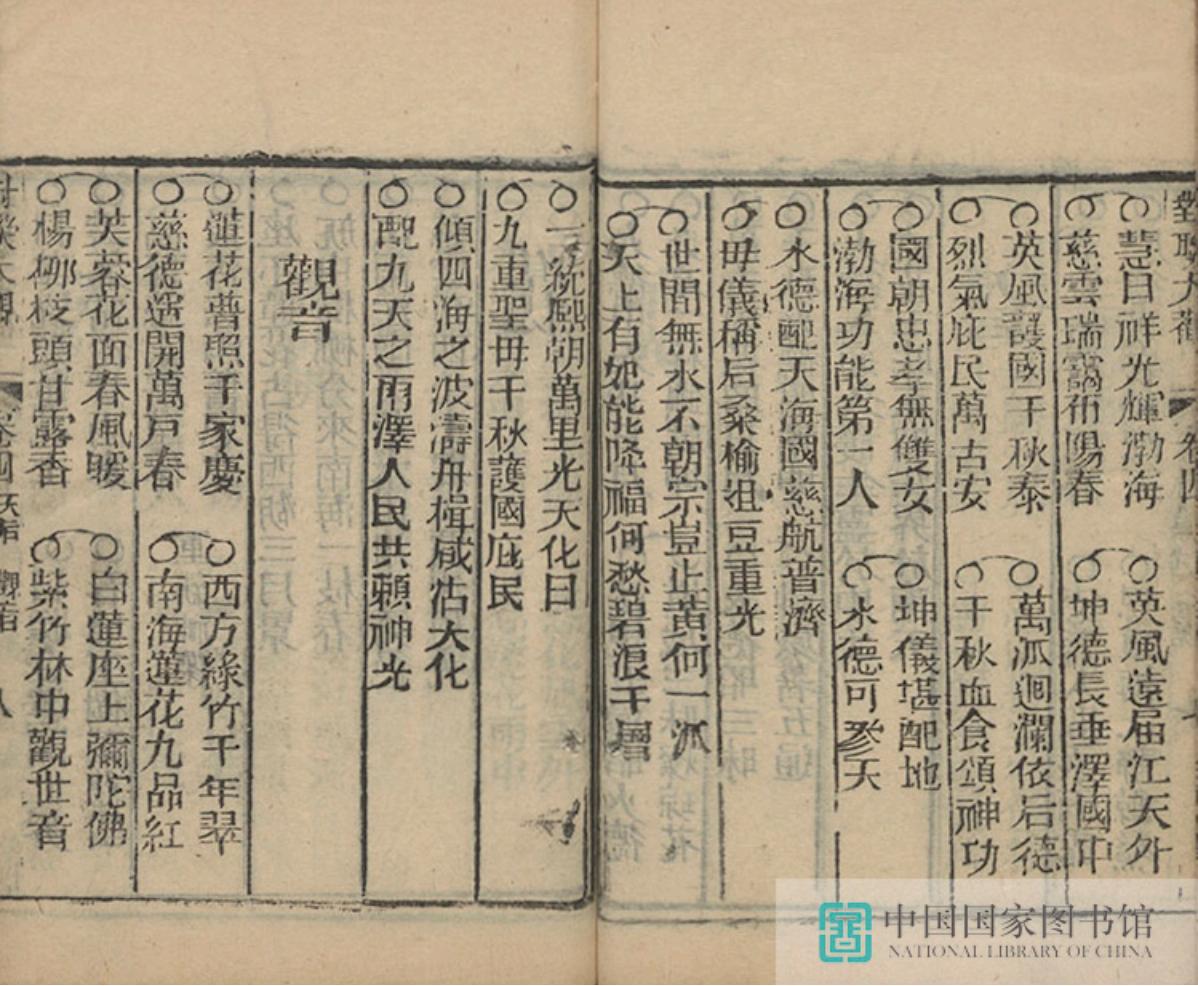 對聯大觀 卷四
慧日祥光輝渤海
慈雲瑞靄布陽春
英風遠届江天外
坤德長垂澤國中
英風護國千秋泰
烈氣庇民萬古安
萬派迴瀾依后德
千秋血食頌神功
國朝忠孝無雙女
渤海功能第一人
坤儀堪配地
水德可參天
水德配天海國慈航普濟
毋儀稱后桑榆俎豆重光
世間無水不朝宗豈止黄河一派
天上有妃能降福何愁碧浪千層
一統熙朝萬里光天化日
九重聖毋千秋護國庇民
傾四海之波濤舟楫咸沾大化
配九天之雨澤人民共賴神光
觀音
蓮花普照千家慶
慈德遥開萬戸春
西方綠竹千年翠
南海蓮花九品紅
芙蓉花面春風暖
楊柳枝頭甘露香
白蓮座上彌陀佛
紫竹林中觀世音
卷四 天后 觀音 八
中国国家图书馆
NATIONAL LIBRARY OF CHINA